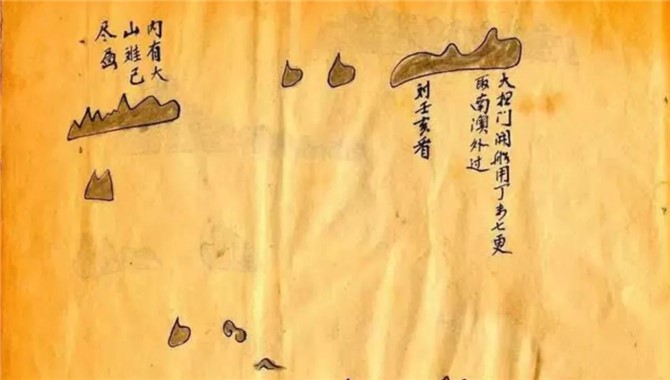 大担门开船用丁未七更
取南澳外过
到壬亥看
内有大
山难已
尽